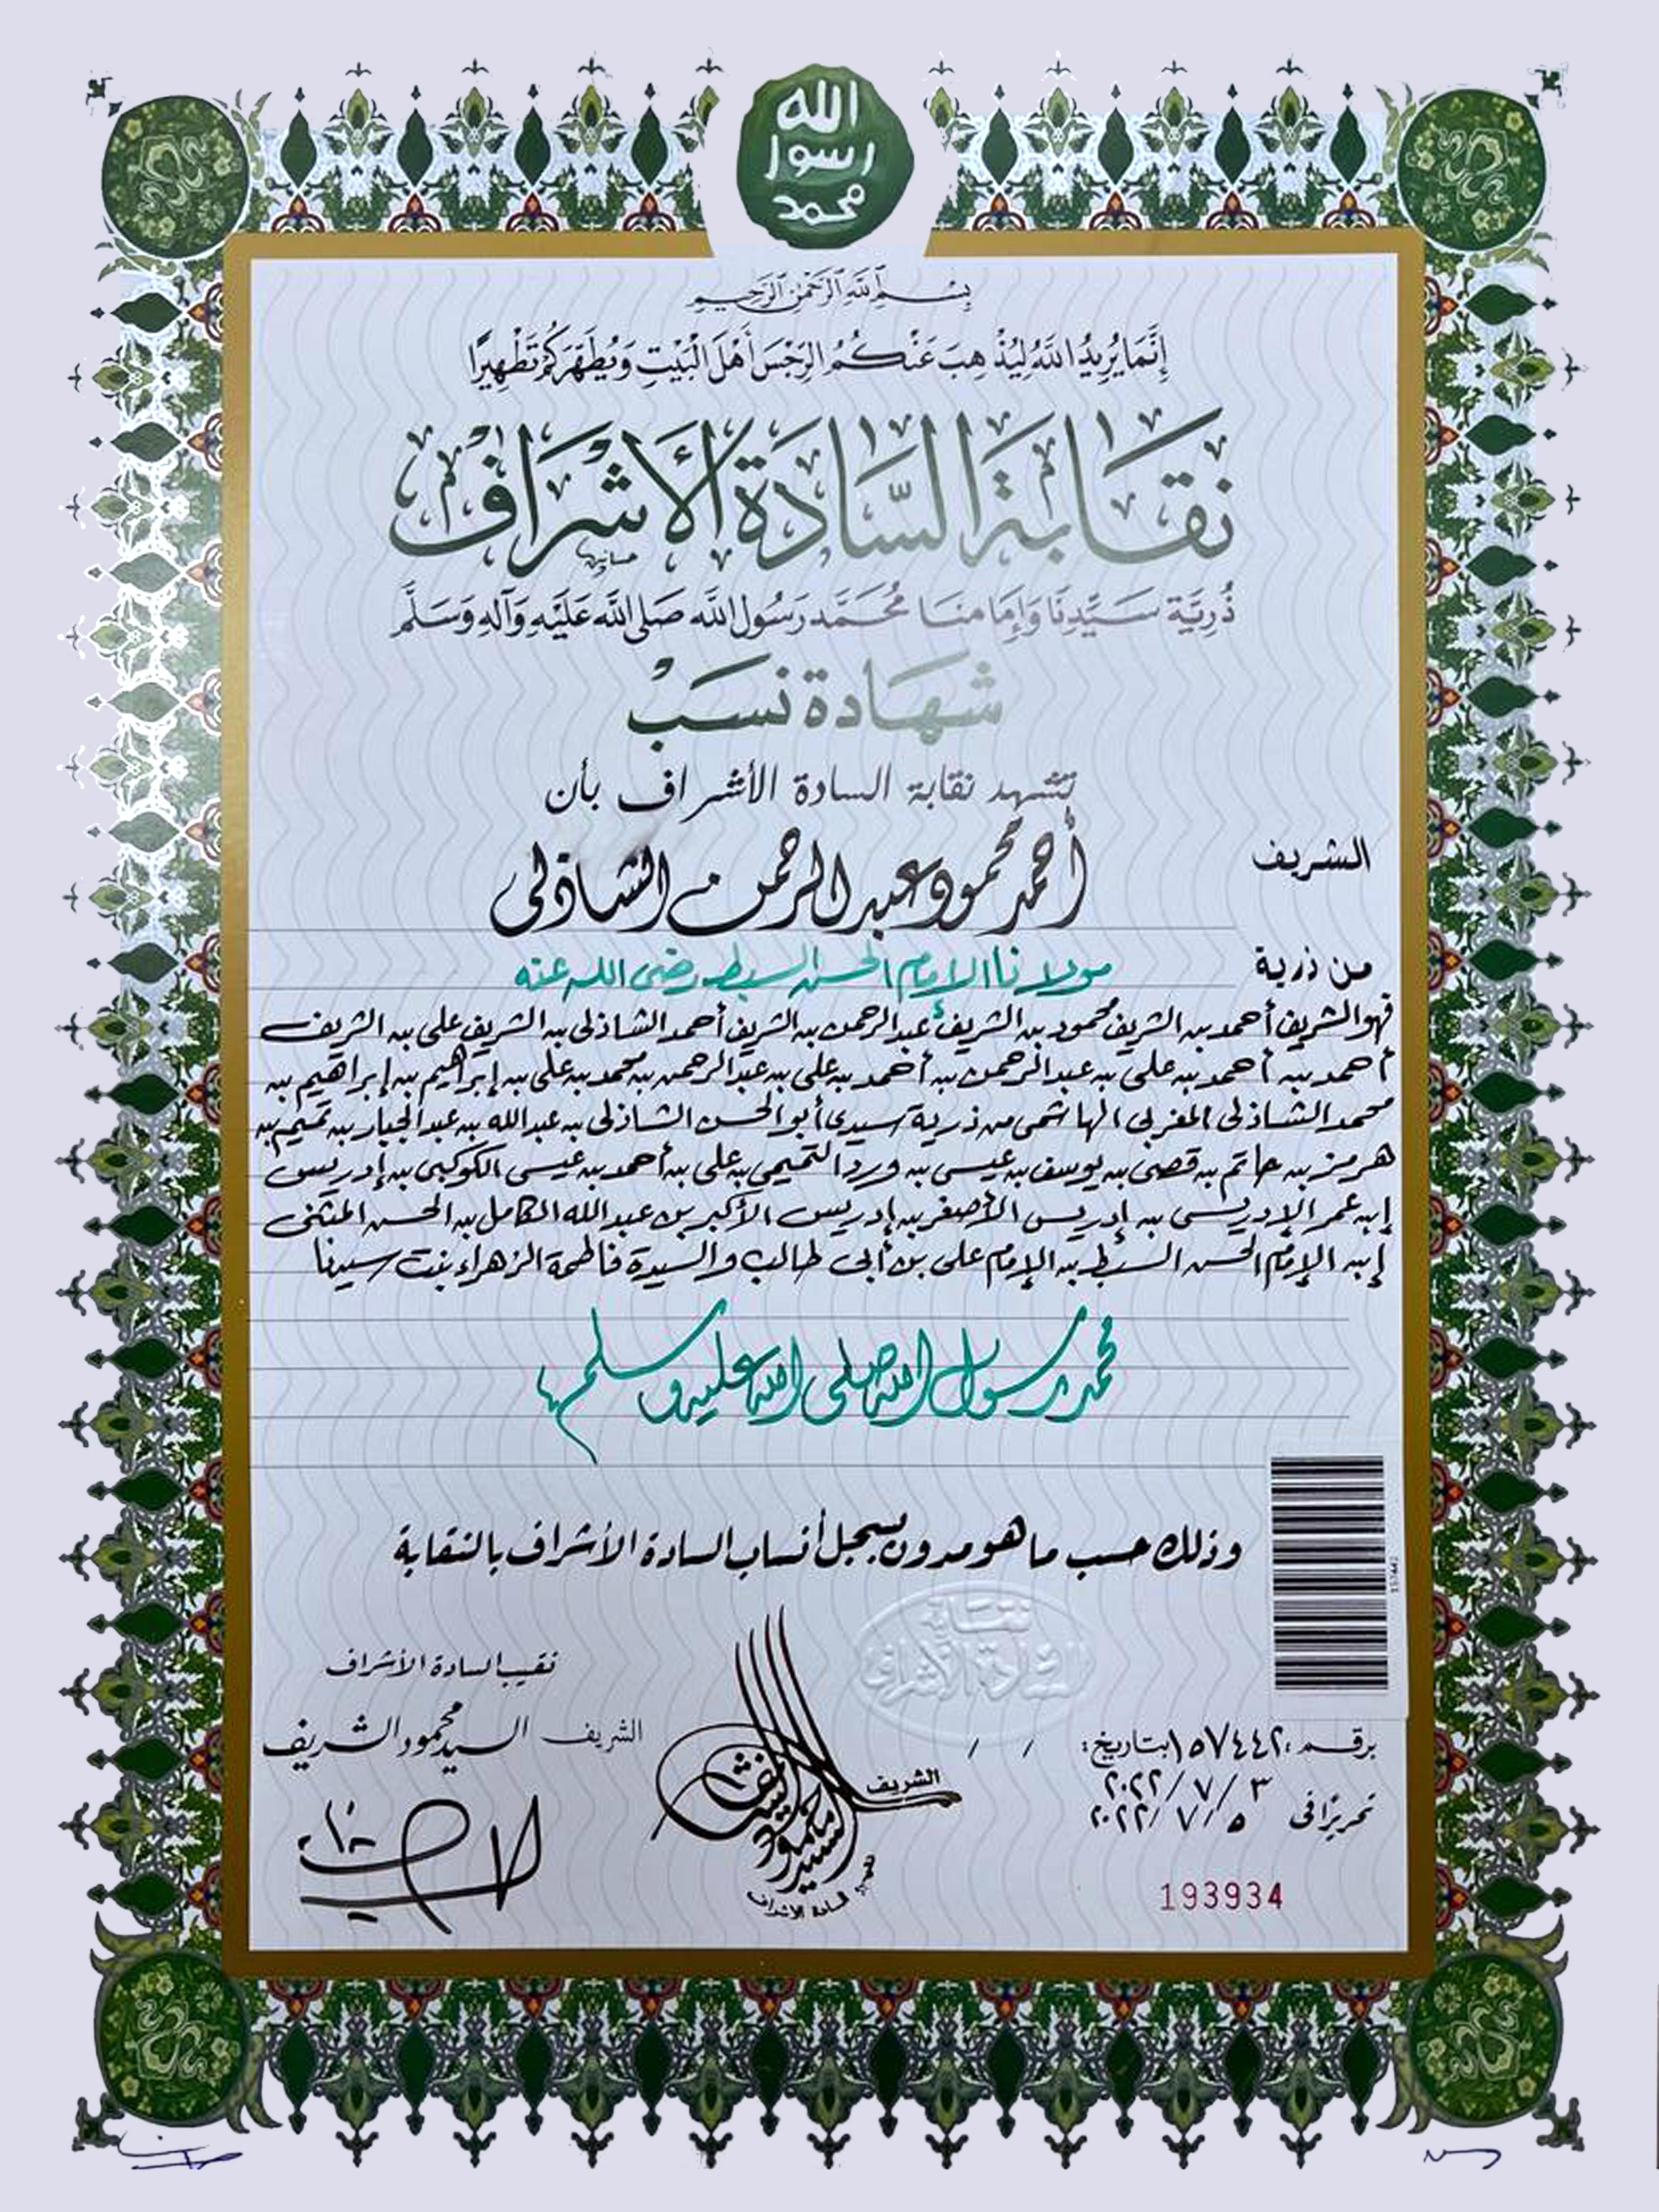 الله
رسول
محمد
بسم الله الرحمن الرحيم
إِنَّمَا يُرِيدُ اللَّهُ لِيُذْهِبَ عَنْكُمُ الرِّجْسَ أَهْلَ الْبَيْتِ وَيُطَهِّرَكُمْ تَطْهِيرًا
نقابة السادة الأشراف
ذُرِيَّة سَيِّدِنَا وَإِمَامِنَا مُحَمَّد رَسُول اللَّه صَلى اللَّه عَلَيْهِ وَآلِهِ وَسَلَّم
شهادة نسب
تشهد نقابة السادة الأشراف بأن
الشريف أحمد محمود عبد الرحمن الشاذلى
من ذرية مولانا الإمام الحسن السبط رضى الله عنه
فهو الشريف أحمد بن الشريف محمود بن الشريف عبد الرحمن بن الشريف أحمد الشاذلى بن الشريف على بن الشريف
أحمد بن أحمد بن على بن عبد الرحمن بن أحمد بن على بن عبد الرحمن بن محمد بن على بن إبراهيم بن إبراهيم بن
محمد الشاذلى المغربى الهاشمى من ذرية سيدى أبو الحسن الشاذلى بن عبد الله بن عبد الجبار بن تميم بن
هرمز بن حاتم بن قصى بن يوسف بن عيسى بن ورد التميمى بن على بن أحمد بن عيسى الكوكبى بن إدريس
إبن عمر الإدريسى بن إدريس الأصغر بن إدريس الأكبر بن عبد الله الكامل بن الحسن المثنى
إبن الإمام الحسن السبط بن الإمام على بن أبى طالب والسيدة فاطمة الزهراء بنت سيدنا
محمد رسول الله صلى الله عليه وسلم
وذلك حسب ما هو مدون بسجل أنساب السادة الأشراف بالنقابة
نقابة
السادة الأشراف
نقيب السادة الأشراف
الشريف السيد محمود الشريف
الشريف
السيد محمود الشريف
نقيب السادة الأشراف
برقم: ١٥٧٤٤٢ بتاريخ: / /
٢٠٢٢/٧/٣
تحريرًا فى ٢٠٢٢/٧/٥
193934
157442